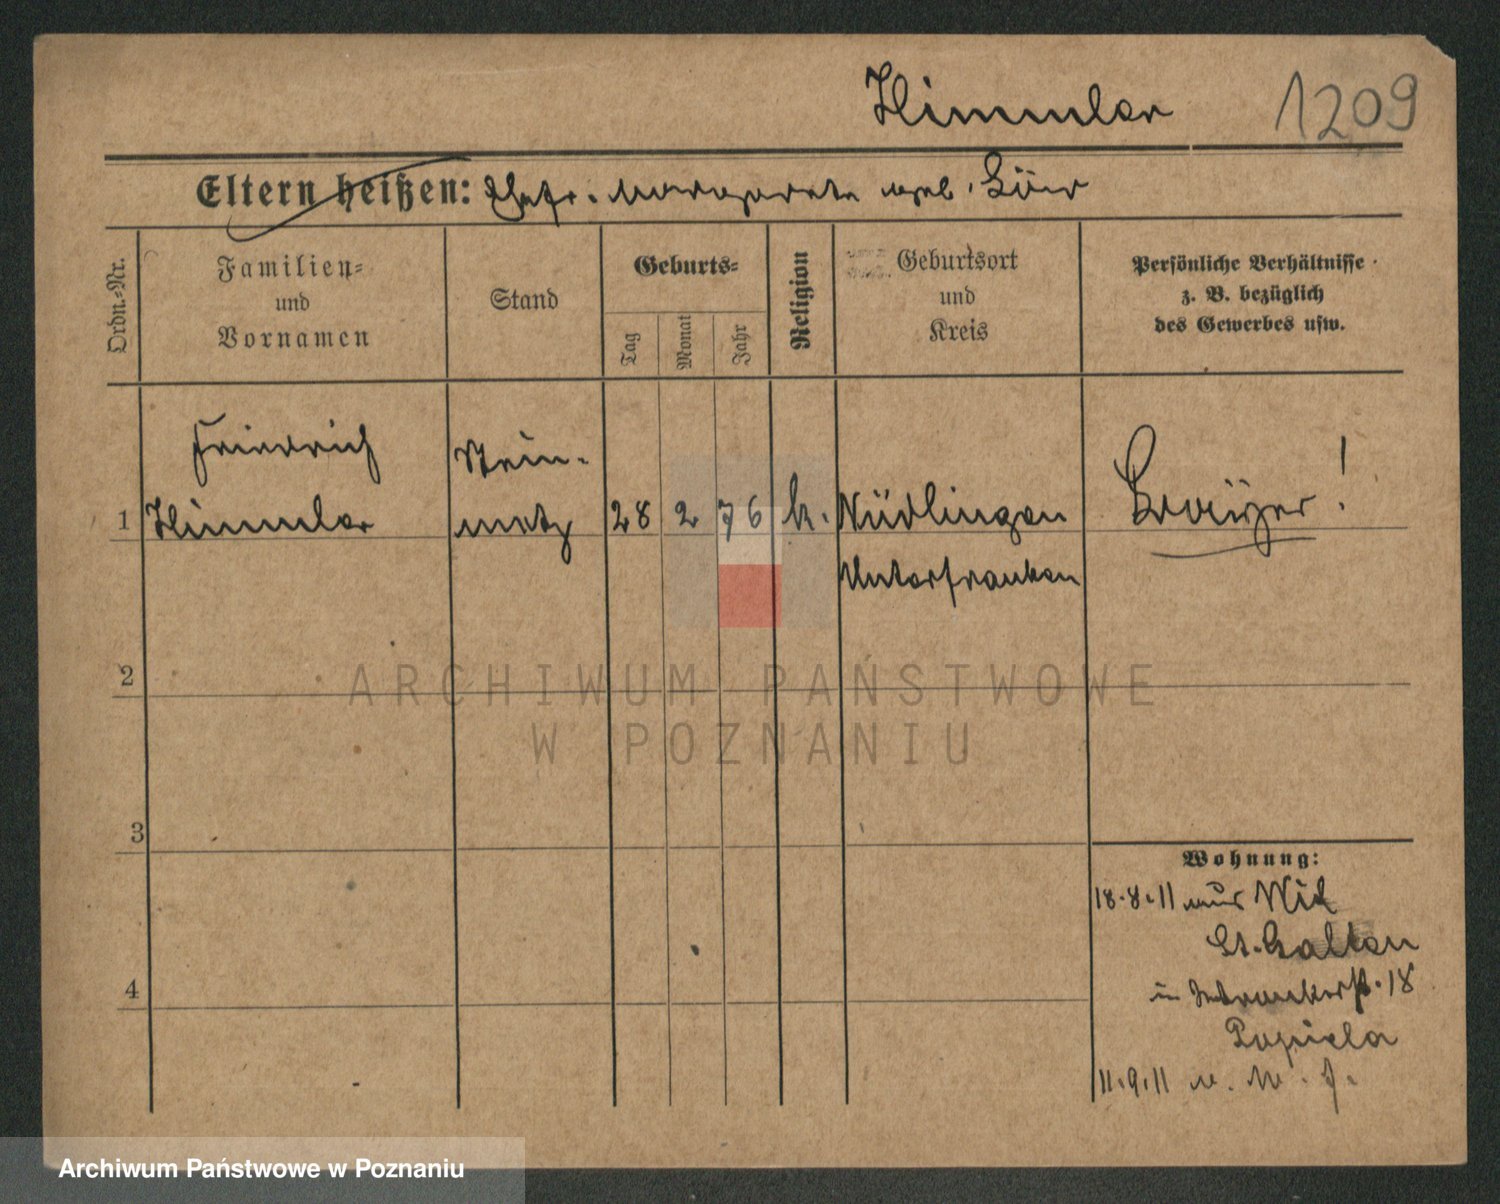 Himmler 1209
Eltern heißen: Ehefr. Margarete geb.
Ordn.-Nr.
Familien-
und
Vornamen
Stand
Geburts-
Tag
Monat
Jahr
Religion
Geburtsort
und
Kreis
Persönliche Verhältnisse
z. B. bezüglich
des Gewerbes usw.
Friedrich
Stein-
1 Himmler metz 28 2 76 k. Nüdlingen !
Unterfranken
2
ARCHIWUM PAŃSTWOWE
W POZNANIU
3
Wohnung:
18.8.11 aus
St. Gallen
in 18
Popiela
4
11.9.11 n.
Archiwum Państwowe w Poznaniu